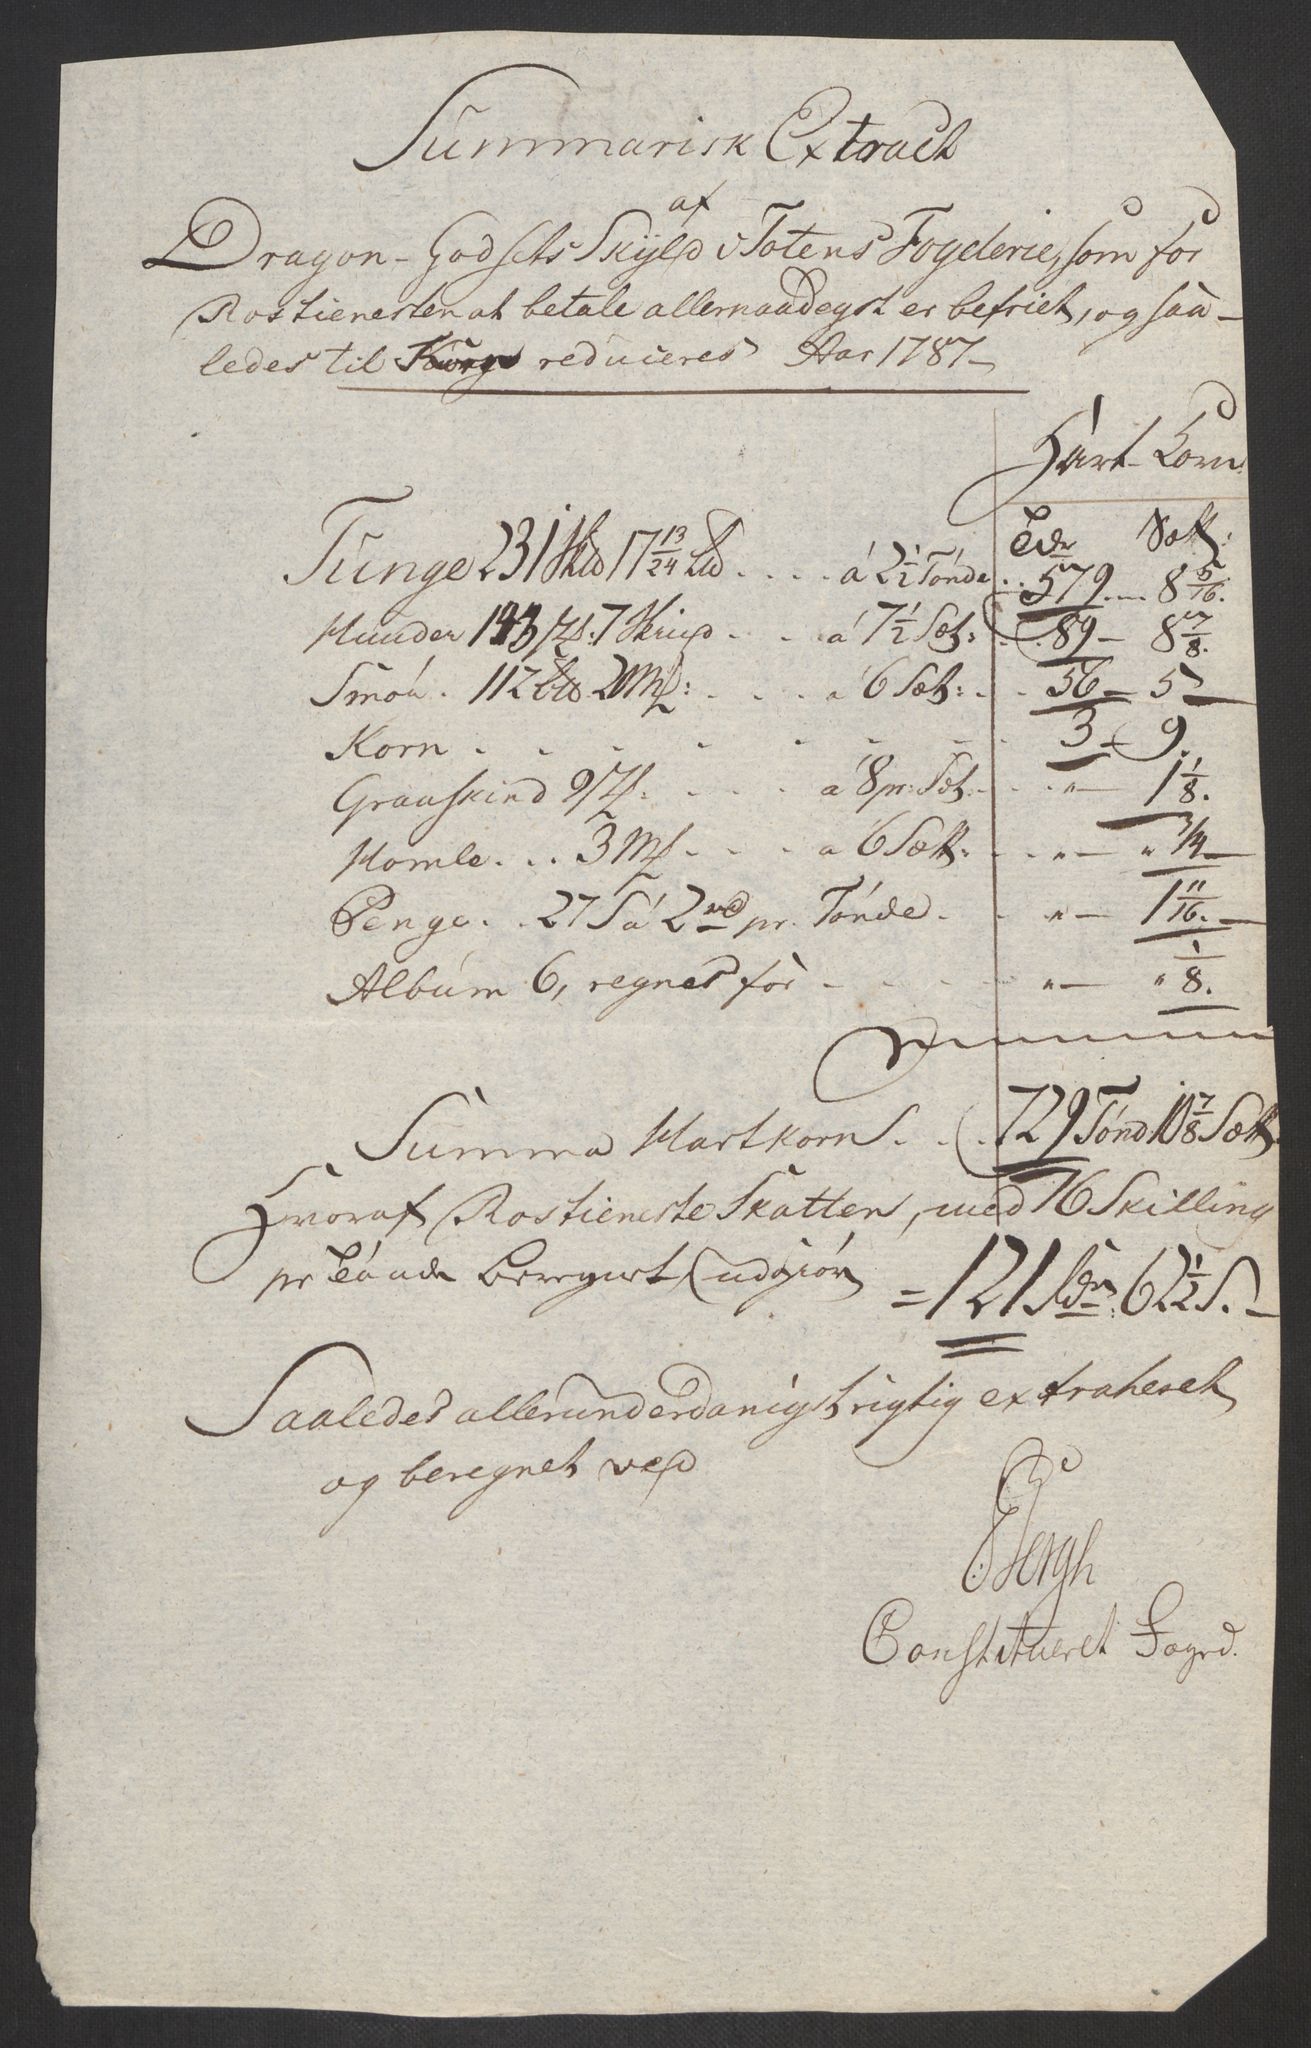 Summarisk Extract
af
Dragon-Godsets Skyld i Totens Fogderie, som for
Rostienesten at betale allernaadegst er befriet, og saa-
ledes til reduceres Aar 1787
Hart-Korn
Tdr Sætt:
Tunge 231 Skd 17 13/24 Ld .... á 2½ Tónde ... 579 8 5/16.
Huuder 143 7 Skind ... á 7½ Sæt: ... 89 8 7/8.
Smór. 112 20 ... á 6 Sæt: ... 56 5
Korn ........ 3 9.
Graaskind 9 ... á 8 pr: Sæt: ... " 1 1/8.
Homle ... 3 ... a 6 Sætt: ... " " 3/4
Penge .. 27 S á 2 pr. Tónde ... " 1 11/16.
Album 6, regnes for ..... " " 1/8.
Summa Hartkorn ... 729 Tónd 10 7/8 Sætt.
Hvoraf Rostieneste Skatten, med 16 Skilling
pr Tónde beregnet, udgiór = 121 62½ S.
Saaledes allerunderdanigst rigtig extraheret
og beregnet ved
Bergh
Constitueret Foged.